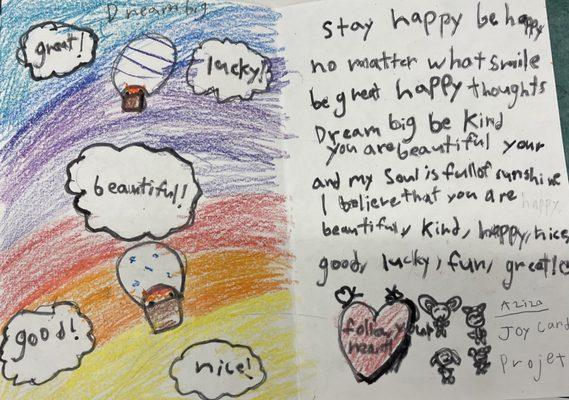 Dream big
great!
lucky!
beautiful!
good!
nice!
stay happy be happy
no matter what smile
be great happy thoughts
Dream big be kind
you are beautiful your
and my soul is full of sunshine
I believe that you are happy,
beautiful, kind, happy, nice
good, lucky, fun, great!
follow your
heart!
Aziza
Joy Card
Projet